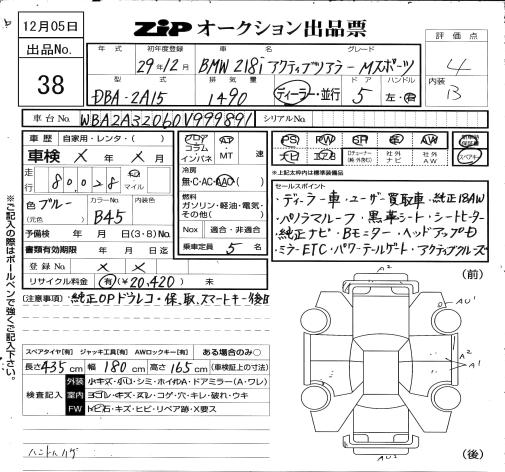 12月05日
出品No.
38
ZiP オークション出品票
評価点
4
内装
B
年式 初年度登録 車名 グレード
29年12月 BMW 218i アクティブツアラー Mスポーツ
型式 排気量 ドア ハンドル
DBA-2A15 1490 ディーラー・並行 5 左・右
車台No. WBA2A32060V999891 シリアルNo.
車歴 自家用・レンタ・( )
車検 × 年 × 月
走行 80028 km マイル
色 ブルー (元色) カラーNo. B45 内装色
予備検 年 月 日(3・8)No.
書類有効期限 年 月 日迄
登録No. × ×
リサイクル料金 有 ¥20,420 未
フロア コラム インパネ AT・MT 速
冷房 無・C・AC・AAC( )
燃料 ガソリン・軽油・電気・その他( )
Nox 適合・非適合
乗車定員 5 名
PS PW SR 革 AW
ナビ エアB 社外ナビ 社外AW スペアキー
※上記太枠内は標準装備品
セールスポイント
・ディーラー車・ユーザー買取車・純正18AW
・パノラマルーフ・黒革シート・シートヒーター
・純正ナビ・Bモニター・ヘッドアップD
・ミラーETC・パワーテールゲート・アクティブクルーズ
(注意事項) ・純正OPドラレコ・保、取、スマートキー後日
スペアタイヤ[有] ジャッキ工具[有] AWロックキー[有] ある場合のみ○
長さ435cm 幅180cm 高さ165cm (車検証上の寸法)
検査記入
外装 小キズ・小凹・シミ・ホイルA・ドアミラー(A・ワレ)
室内 ヨゴレ・キズ・スレ・コゲ・穴・キレ・破れ・ウキ
FW トビ石・キズ・ヒビ・リペア跡・X要ス
ハンドルハゲ
※ご記入の際はボールペンで強くご記入下さい。
(前)
A2
AU1
A2
A1
A2
(後)